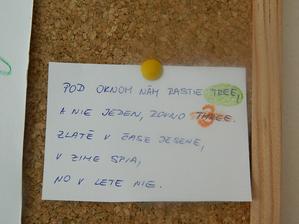 POD OKNOM NÁM RASTIE TREE,
A NIE JEDEN, ROVNO THREE. 3
ZLATÉ V ČASE JESENE,
V ZIME SPIA,
NO V LETE NIE.